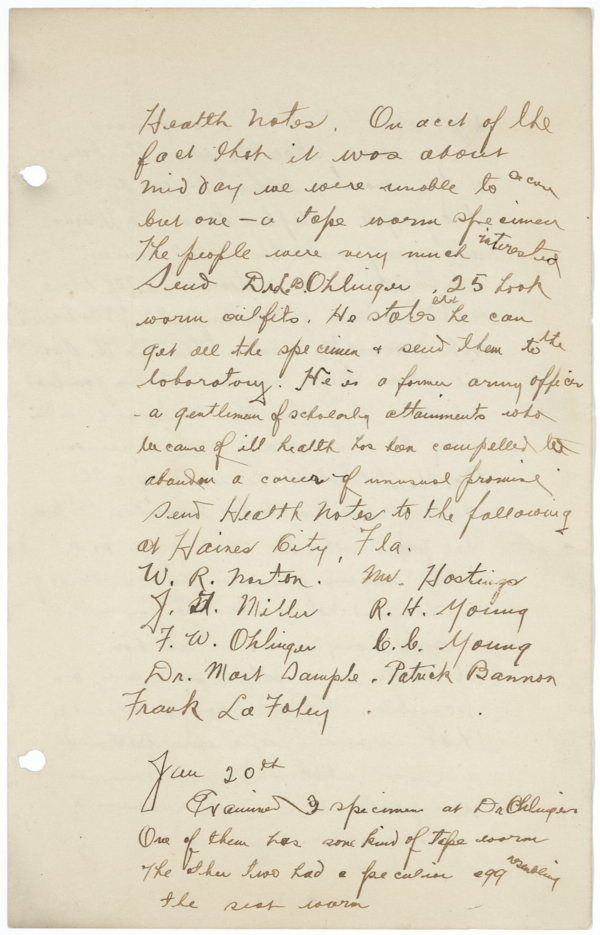 Health Notes. On acct of the
fact that it was about
mid day we were unable to
but one - a tape worm specimen
The people were very much interested
Send Dr. L. B. Ohlinger, 25 hook
worm outfits. He states that he can
get all the specimen & send them to the
laboratory. He is a former army officer
- a gentleman of scholarly attainments who
because of ill health has been compelled to
abandon a career of unusual promise
Send Health Notes to the following
at Haines City, Fla.
W. R. Norton. Mr. Hastings
J. H. Miller R. H. Young
F. W. Ohlinger C. C. Young
Dr. Mort Sample. Patrick Bannon
Frank La Foley.
Jan 20th
Examined 3 specimen at Dr Ohlingers
One of them has some kind of tape worm
The other two had a peculiar egg resembling
the seat worm